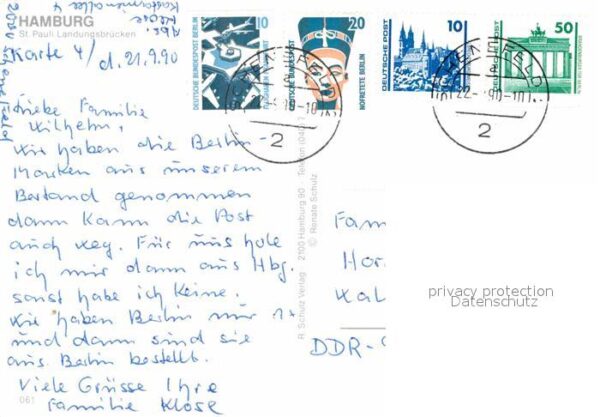 HAMBURG
St. Pauli Landungsbrücken
Abs.
Klose
Karte 4/ d. 21.9.90
Liebe Familie
Wilhelm,
Wir haben die Berlin-
Marken aus unserem
Bestand genommen
dann kann die Post
auch weg. Für uns hole
ich mir dann aus Hbg.
sonst habe ich keine.
Wir haben Berlin nur 1x
und dann sind sie
aus Berlin bestellt.
Viele Grüsse Ihre
Familie Klose
061
R. Schulz Verlag 2100 Hamburg 90 Telefon (040) 7
© Renate Schulz
DEUTSCHE BUNDESPOST BERLIN
10
DEUTSCHE BUNDESPOST
20
NOFRETETE BERLIN
DEUTSCHE POST
10
DEUTSCHE POST
50
22.-9.90-10
2
22.-9.90-10
2
Fam
Hor
Kal
DDR-
privacy protection
Datenschutz